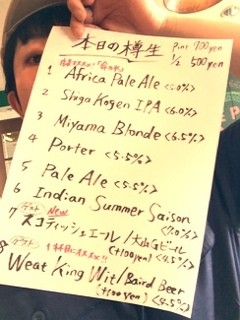 本日の樽生
Pint 900yen
1/2 500yen
1 Africa Pale Ale <5.0%>
2 Shiga Kogen IPA <6.0%>
3 Miyama Blonde <6.5%>
4 Porter <5.5%>
5 Pale Ale <5.5%>
6 Indian Summer Saison
<7.0%>
7 ゲスト New
スコティッシュエール/大山Gビール
(+100yen) <4.5%>
8 ゲスト 1杯目にオススメ!!
Weat King Wit/Baird Beer
(+100yen) <4.5%>